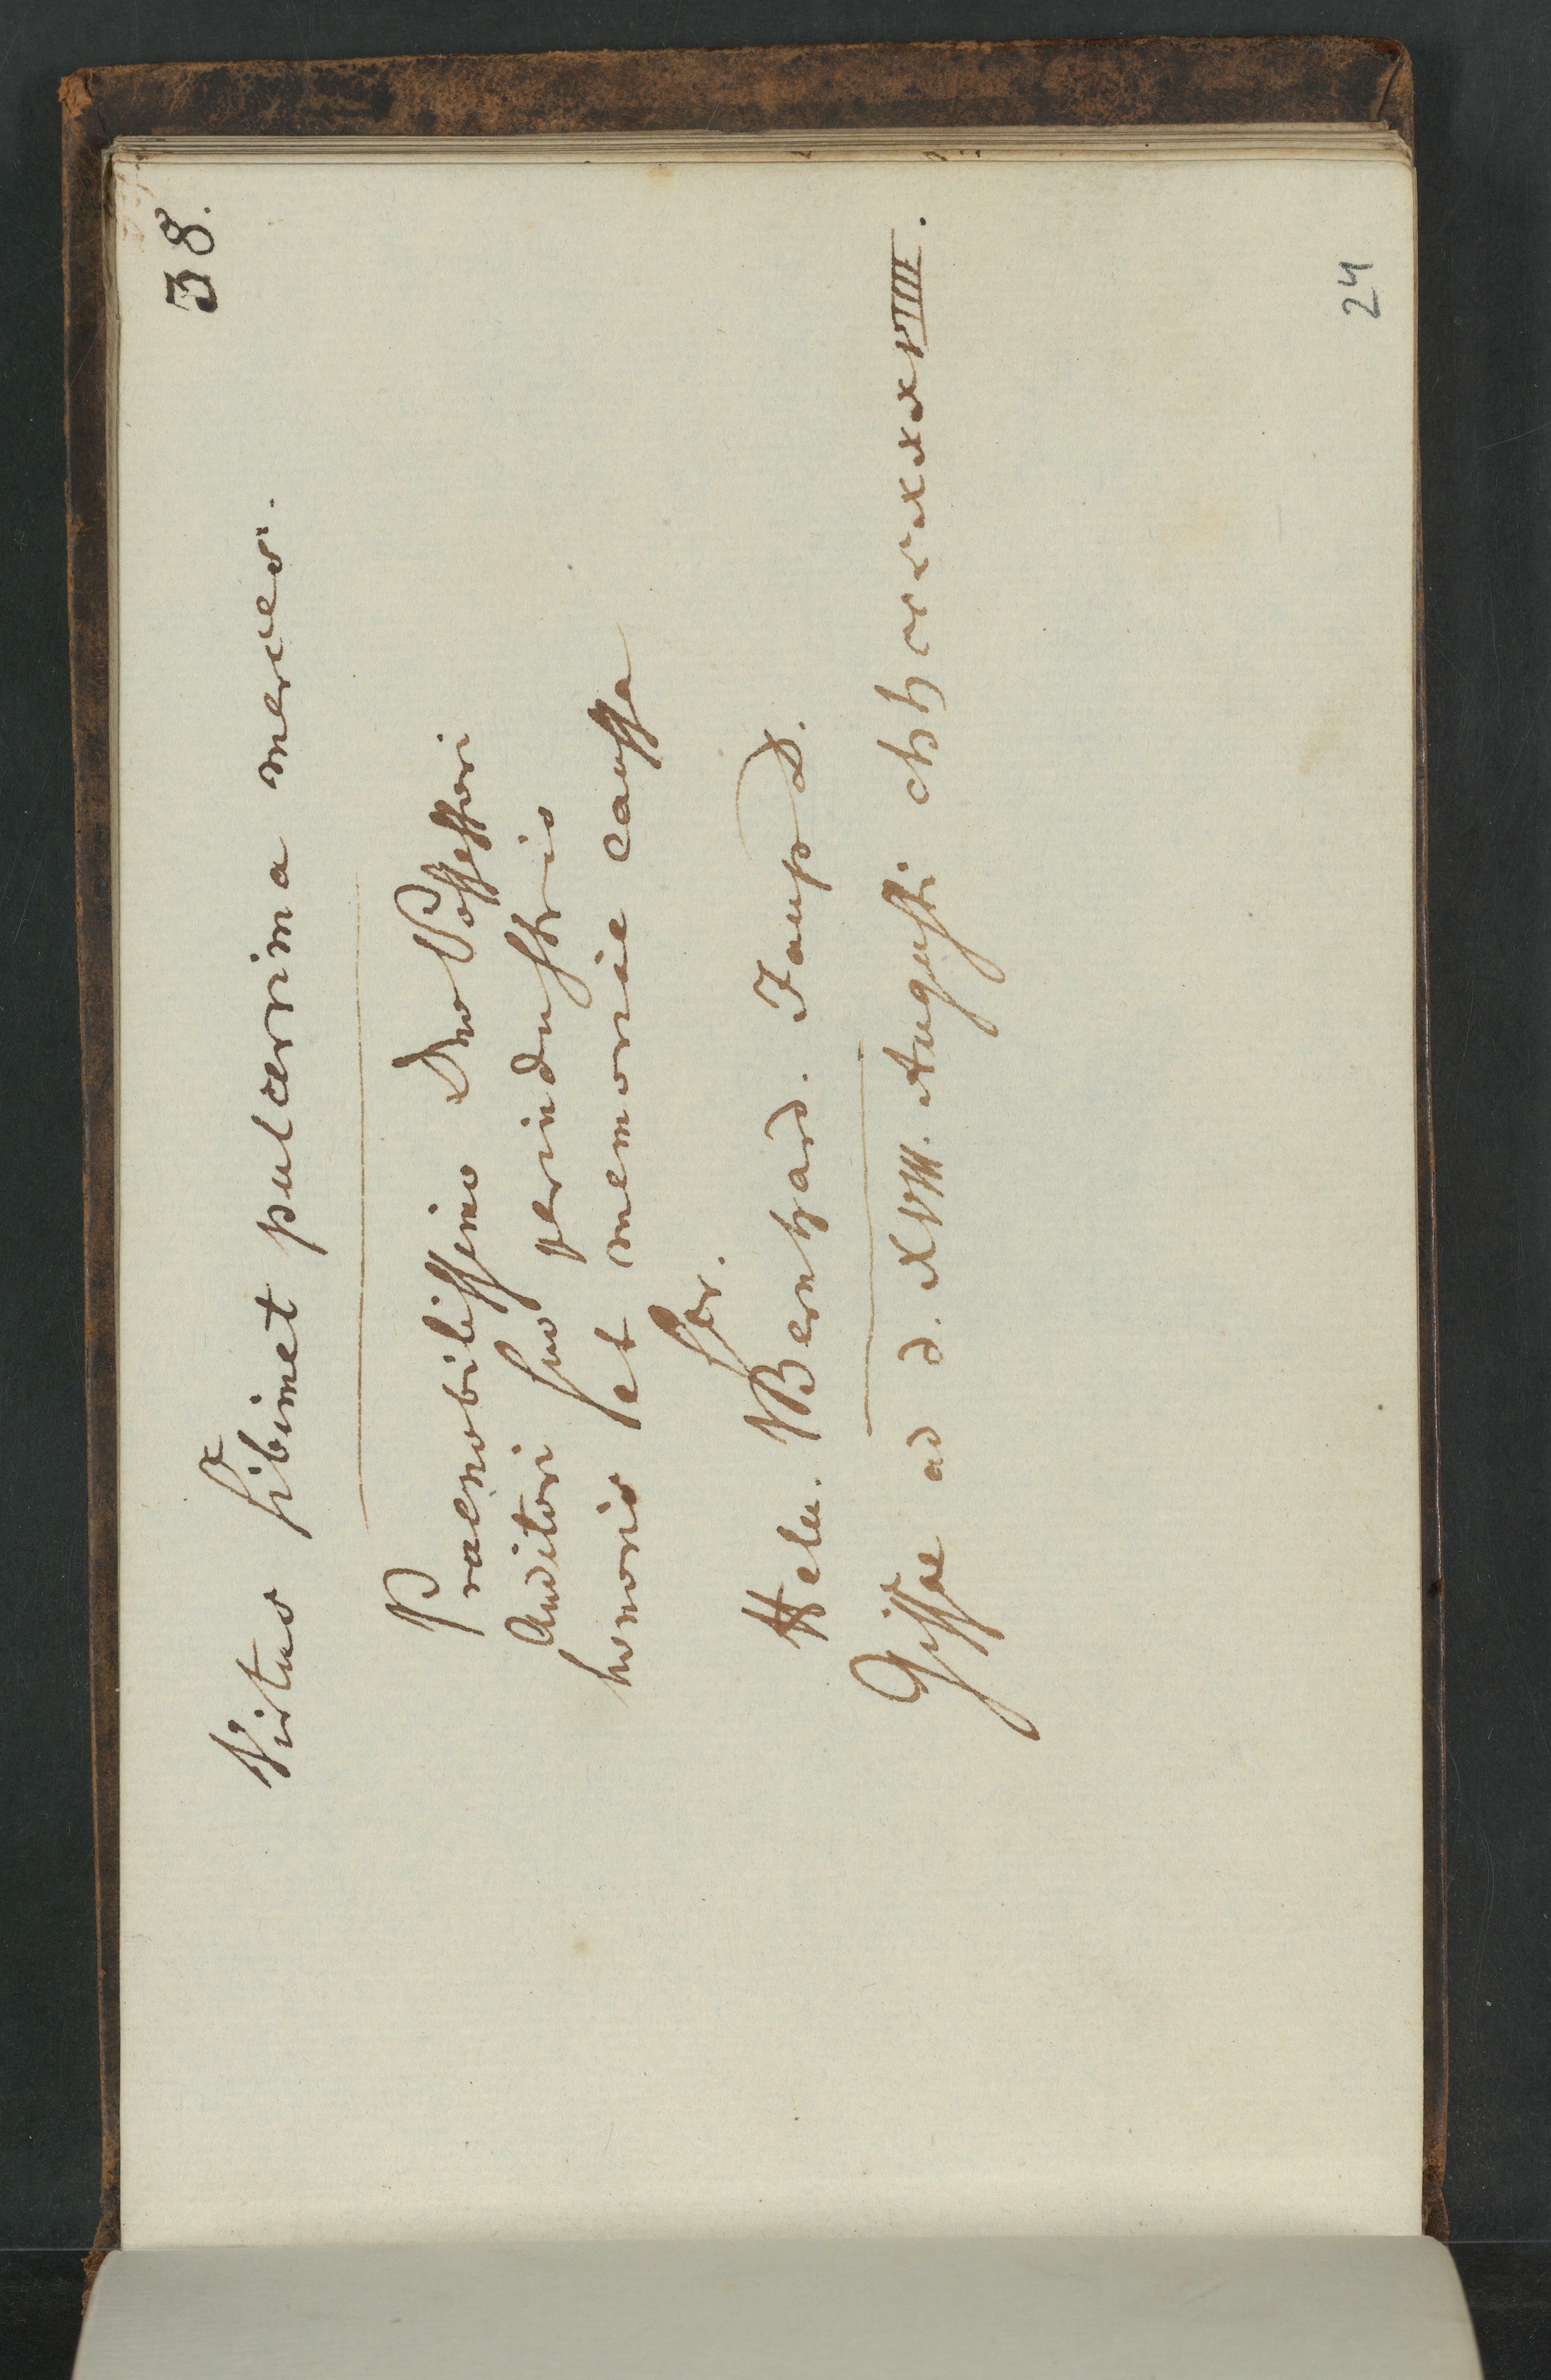 38.
Virtus sibimet pulcerrima merces.
Praenobilissimo Dno Possessori
Auditori suo perindustrio
honoris et memoriae caussa
scr.
Helv. Bernhard. Jaup D.
Gissae ad d. XVIII. Augusti
24